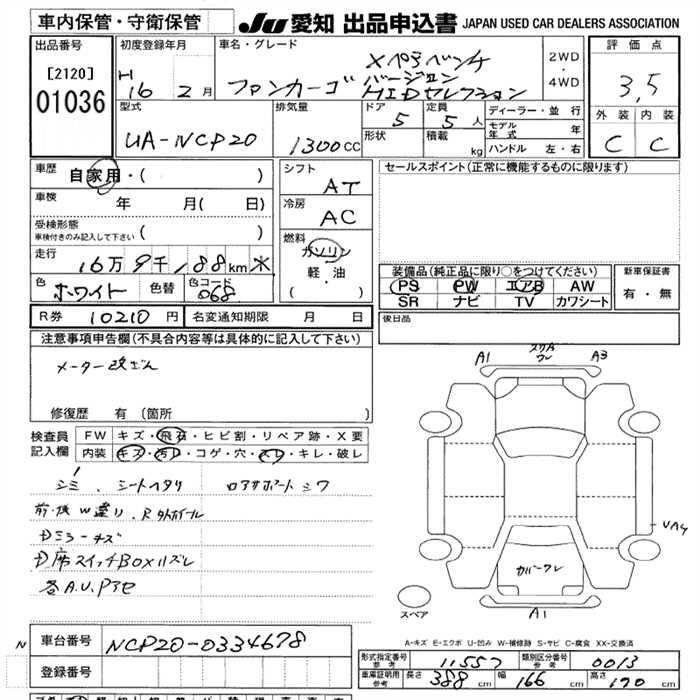 車内保管・守衛保管
JU 愛知 出品申込書 JAPAN USED CAR DEALERS ASSOCIATION
出品番号
[2120]
01036
初度登録年月
H 16 2月
車名・グレード
ファンカーゴ
バージョン
HIDセレクション
2WD
・
4WD
評価点
3,5
外装 内装
C C
型式
UA-NCP20
排気量
1300cc
ドア
5
形状
定員
5人
積載
kg
ディーラー・並行
モデル年式 年
ハンドル 左・右
車歴
自家用・( )
車検
年 月( 日)
受検形態
車検付きのみ記入して下さい ( )
走行
16万9千188km ※
色
ホワイト
色替
色コード
068
シフト
AT
冷房
AC
燃料
ガソリン
軽・油
( )
セールスポイント(正常に機能するものに限ります)
装備品(純正品に限り○をつけてください)
PS PW エアB AW
SR ナビ TV カワシート
新車保証書
有・無
R券 10210円
名変通知期限 月 日
後日品
注意事項申告欄(不具合内容等は具体的に記入して下さい)
メーター改ざん
修復歴 有(箇所
検査員
記入欄
FW キズ・飛石・ヒビ割・リペア跡・X要
内装 キズ・汚レ・コゲ・穴・スレ・キレ・破レ
シミ、シートヘタリ
シワ
前・後W違リ、R外ホイール
各A.U.Pアセ
A1
A3
A1
スペア
A-キズ E-エクボ U-凹み W-補修跡 S-サビ C-腐食 XX-交換済
N
車台番号
NCP20-0334678
登録番号
形式指定番号
参考
11557
類別区分番号
参考
0013
車庫証明用
参考
長さ 388cm
幅 166cm
高さ 170cm